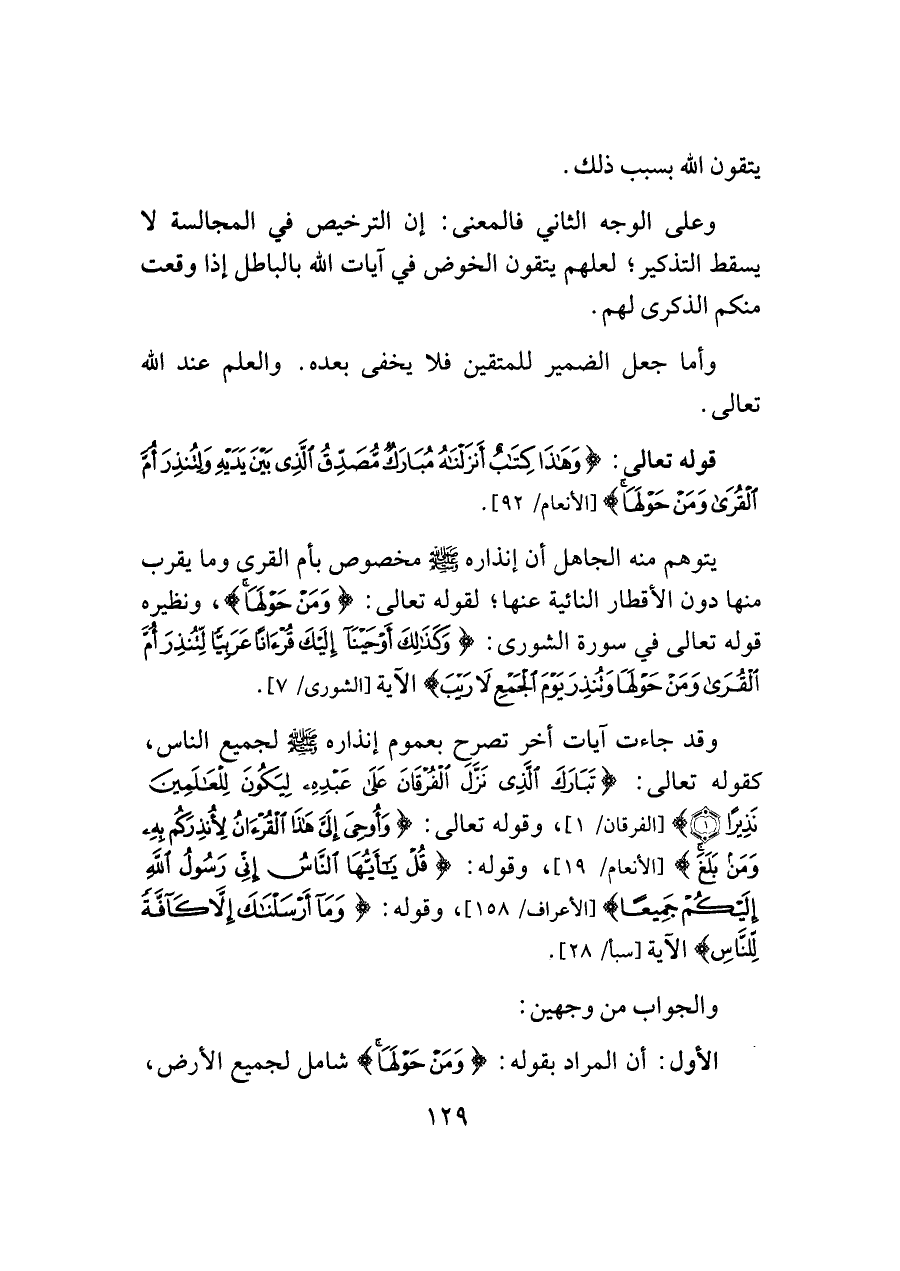 يتقون الله بسبب ذلك.
وعلى الوجه الثاني فالمعنى: إن الترخيص في المجالسة لا
يسقط التذكير؛ لعلهم يتقون الخوض في آيات الله بالباطل إذا وقعت
منكم الذكرى لهم.
وأما جعل الضمير للمتقين فلا يخفى بعده. والعلم عند الله
تعالى.
قوله تعالى: ﴿ وَهَٰذَا كِتَٰبٌ أَنزَلْنَٰهُ مُبَارَكٌ مُّصَدِّقُ ٱلَّذِى بَيْنَ يَدَيْهِ وَلِتُنذِرَ أُمَّ
ٱلْقُرَىٰ وَمَنْ حَوْلَهَاۚ﴾ [الأنعام/ ٩٢].
يتوهم منه الجاهل أن إنذاره ﷺ مخصوص بأم القرى وما يقرب
منها دون الأقطار النائية عنها؛ لقوله تعالى: ﴿ وَمَنْ حَوْلَهَاۚ﴾، ونظيره
قوله تعالى في سورة الشورى: ﴿ وَكَذَٰلِكَ أَوْحَيْنَآ إِلَيْكَ قُرْءَانًا عَرَبِيًّا لِّتُنذِرَ أُمَّ
ٱلْقُرَىٰ وَمَنْ حَوْلَهَا وَتُنذِرَ يَوْمَ ٱلْجَمْعِ لَا رَيْبَ﴾ الآية [الشورى/ ٧].
وقد جاءت آيات أخر تصرح بعموم إنذاره ﷺ لجميع الناس،
كقوله تعالى: ﴿ تَبَارَكَ ٱلَّذِى نَزَّلَ ٱلْفُرْقَانَ عَلَىٰ عَبْدِهِۦ لِيَكُونَ لِلْعَٰلَمِينَ
نَذِيرًا ١﴾ [الفرقان/ ١]، وقوله تعالى: ﴿ وَأُوحِىَ إِلَىَّ هَٰذَا ٱلْقُرْءَانُ لِأُنذِرَكُم بِهِۦ
وَمَنۢ بَلَغَۚ ﴾ [الأنعام/ ١٩]، وقوله: ﴿ قُلْ يَٰٓأَيُّهَا ٱلنَّاسُ إِنِّى رَسُولُ ٱللَّهِ
إِلَيْكُمْ جَمِيعًا﴾ [الأعراف/ ١٥٨]، وقوله: ﴿ وَمَآ أَرْسَلْنَٰكَ إِلَّا كَآفَّةً
لِّلنَّاسِ﴾ الآية [سبأ/ ٢٨].
والجواب من وجهين:
الأول: أن المراد بقوله: ﴿ وَمَنْ حَوْلَهَاۚ﴾ شامل لجميع الأرض،
١٢٩